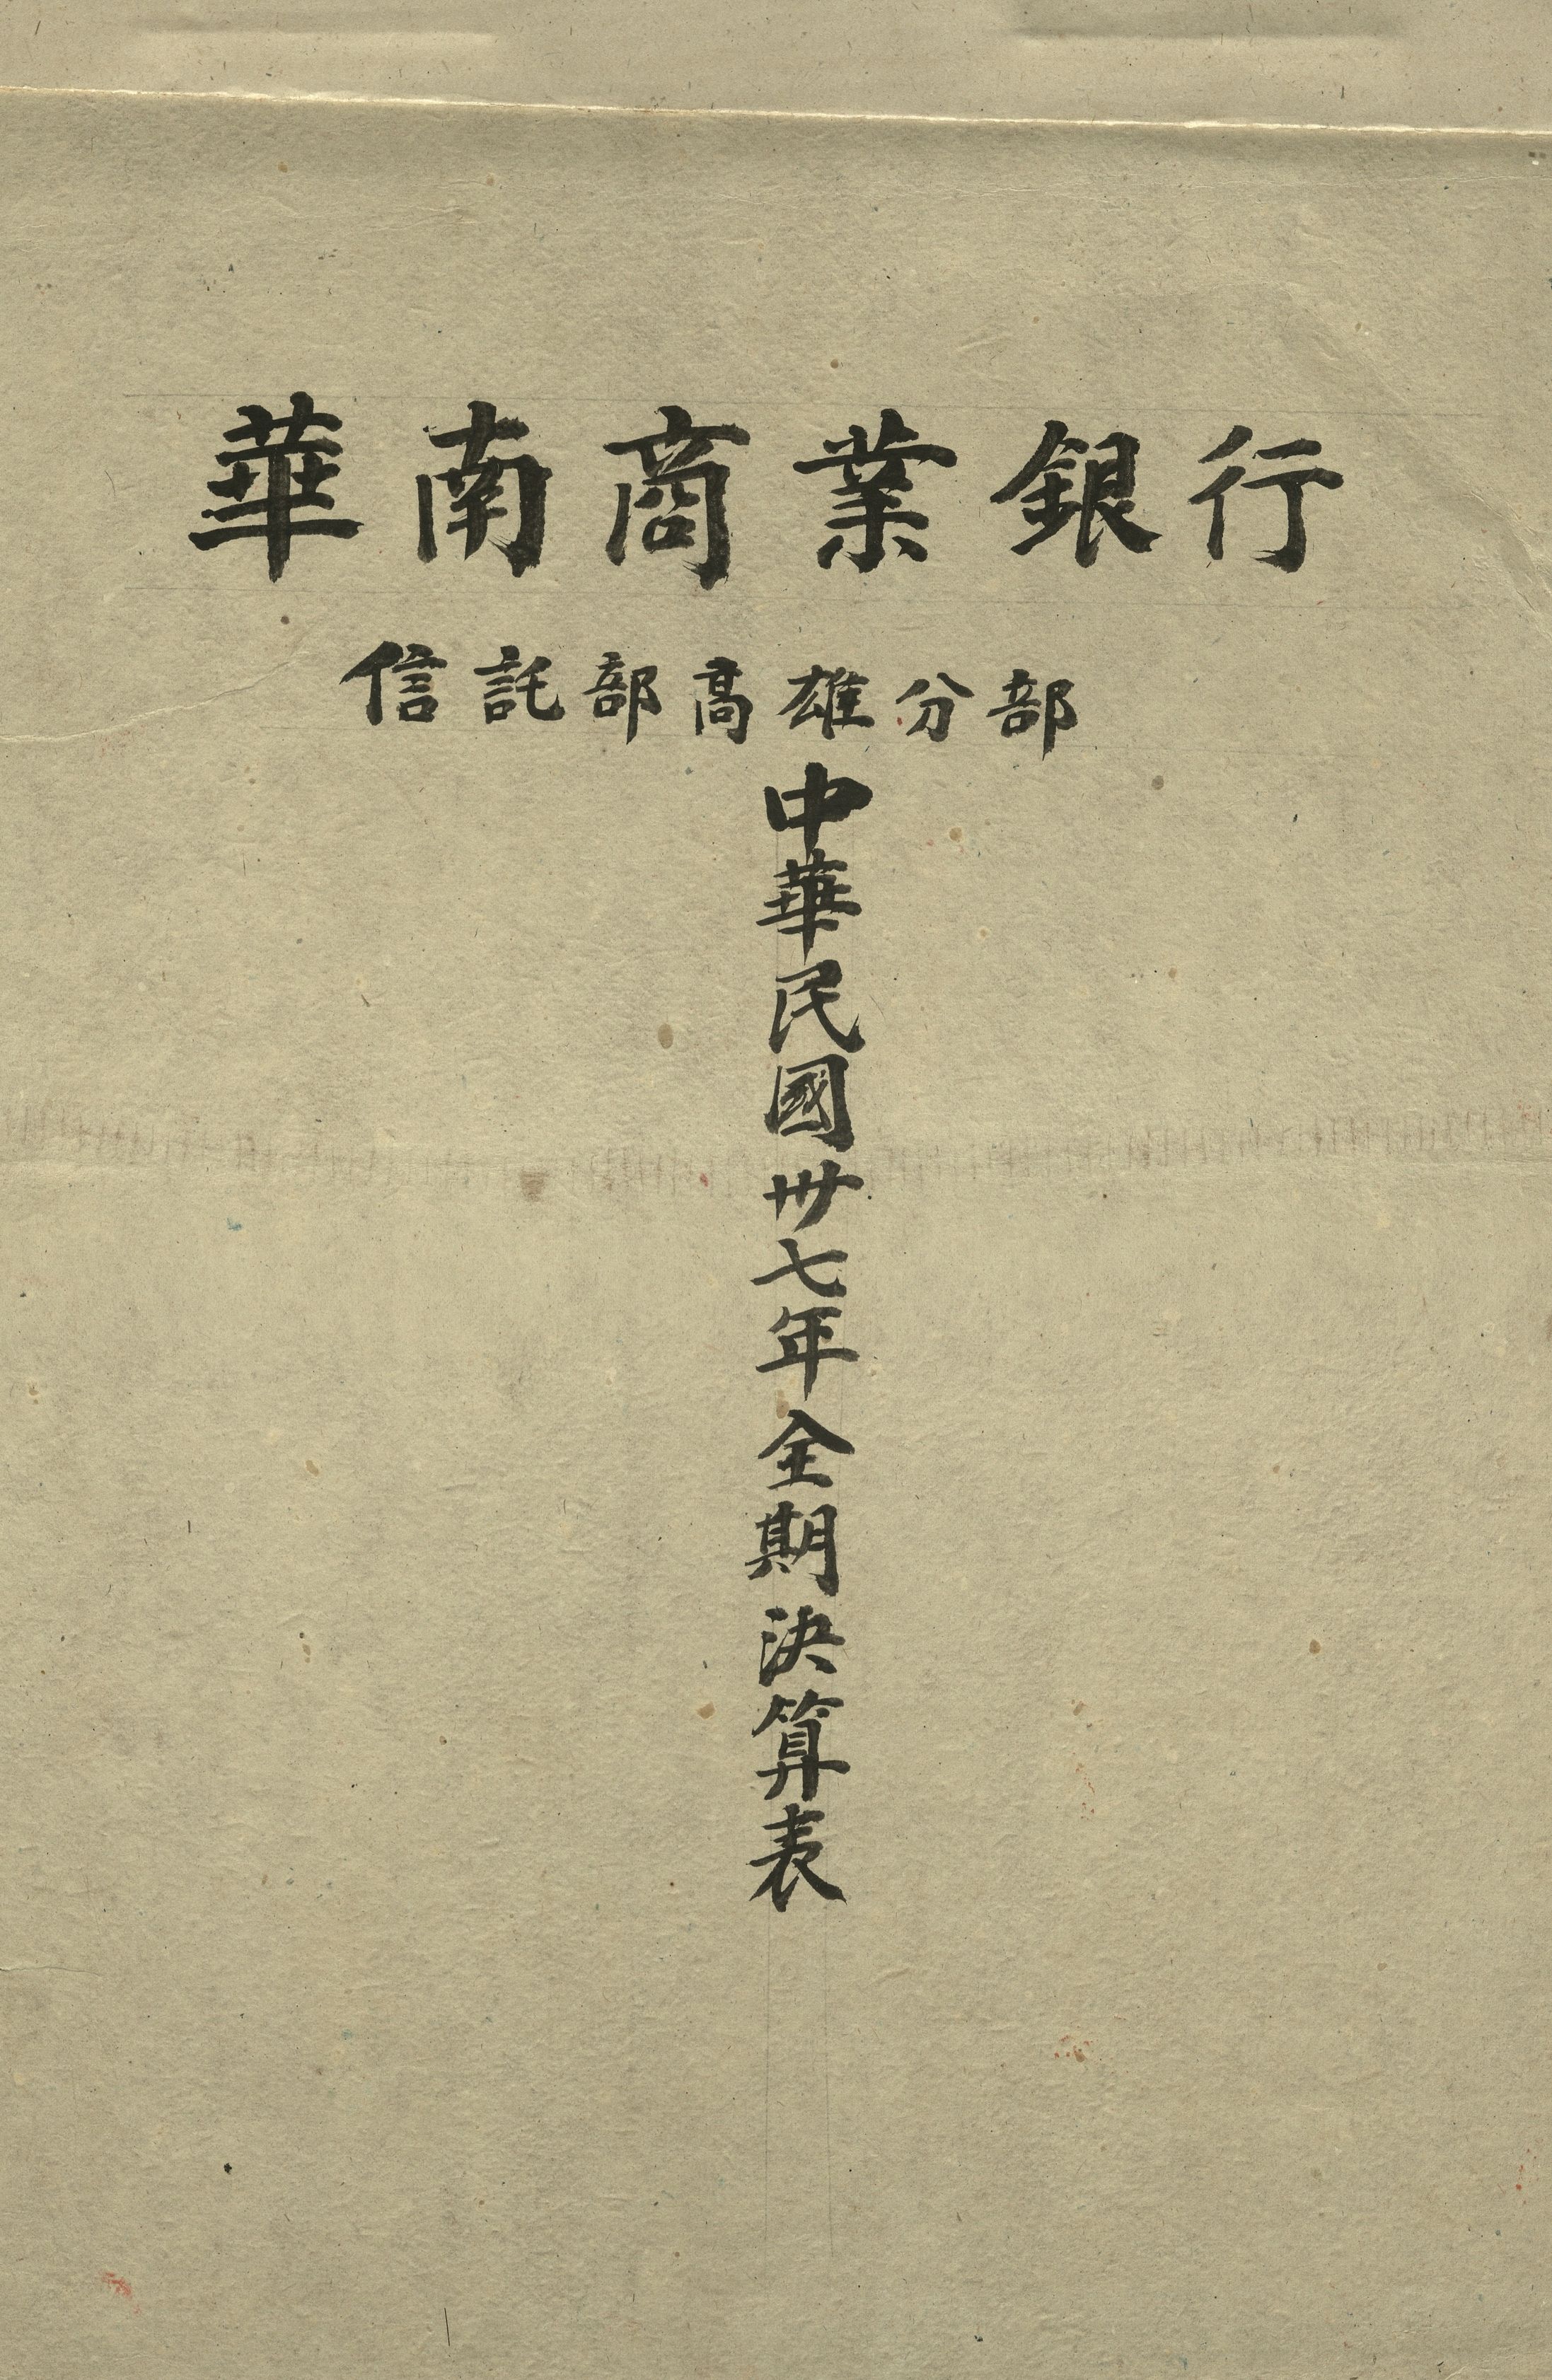 華南商業銀行
信託部高雄分部
中華民國卅七年全期決算表